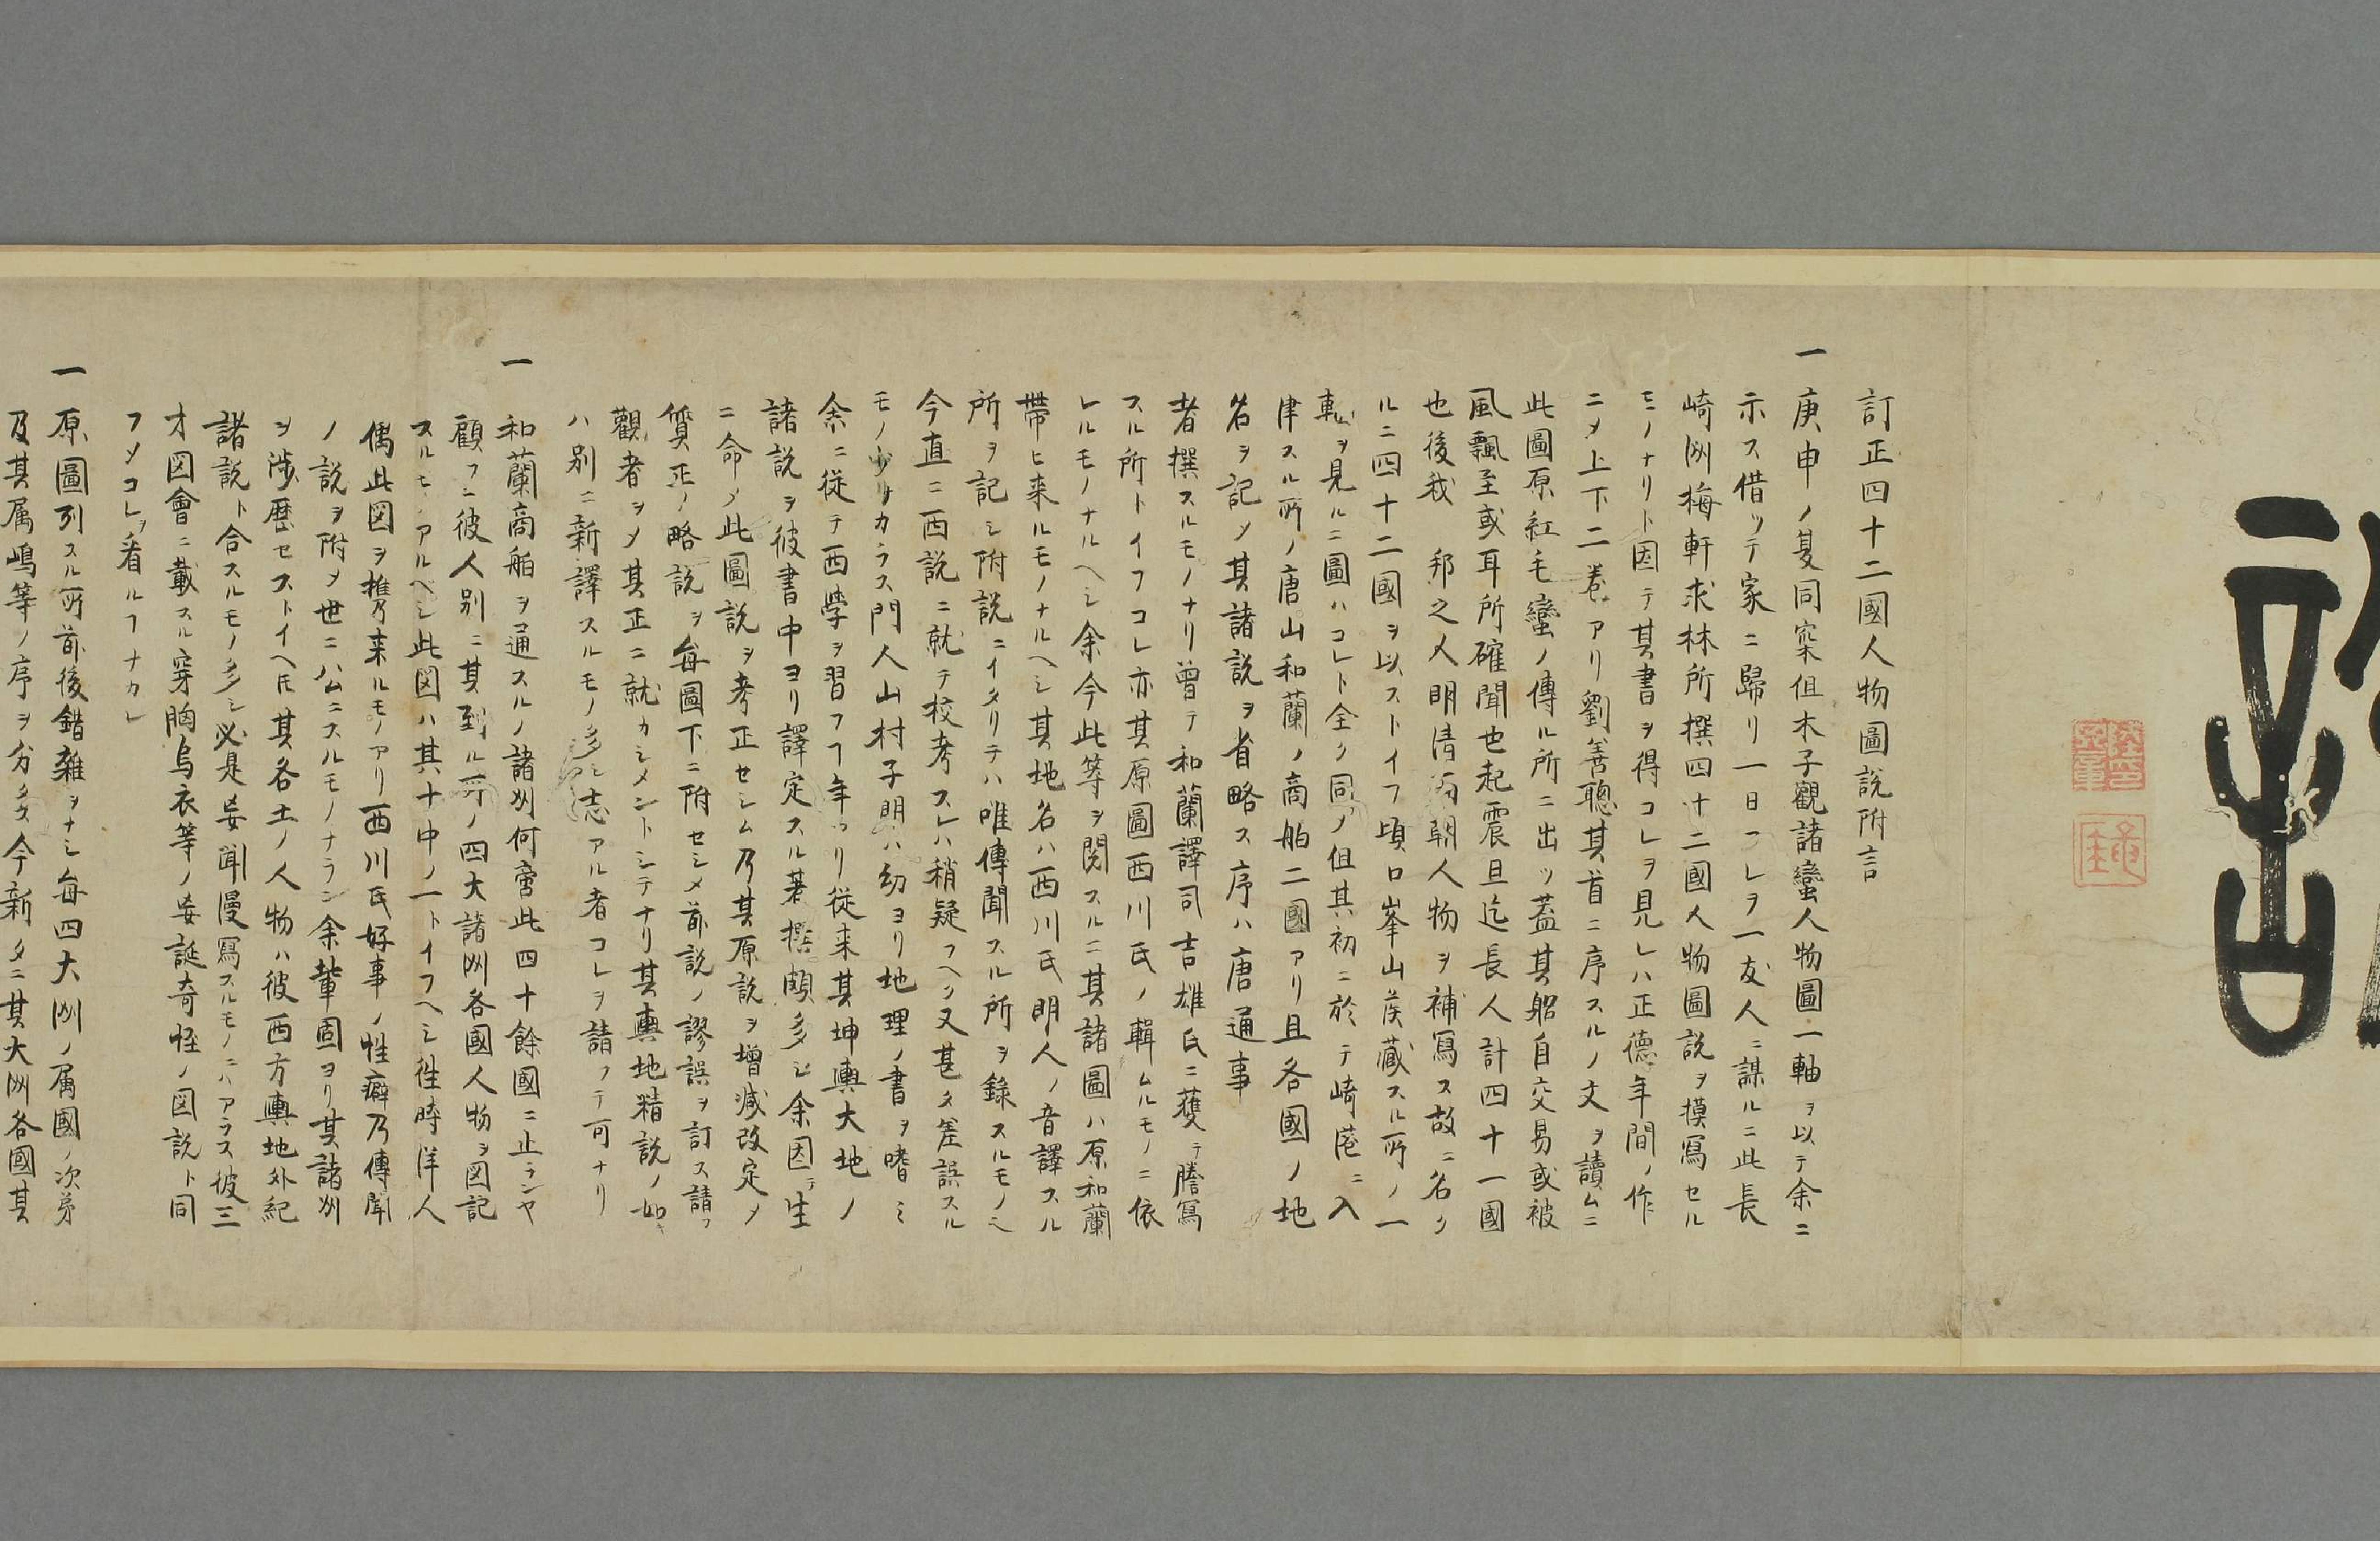 訂正四十二國人物圖説附言
一 庚申ノ夏同寀伹木子觀諸蠻人物圖一軸ヲ以テ余ニ
示ス借ッテ家ニ歸リ一日コレヲ一友人ニ謀ルニ此長
崎洲梅軒求林所撰四十二國人物圖説ヲ摸寫セル
モノナリト因テ其書ヲ得コレヲ見レハ正德年間ノ作
ニメ上下二卷アリ劉善聰其首ニ序スルノ文ヲ讀ムニ
此圖原紅毛蠻ノ傳ル所ニ出ツ蓋其躬自交易或被
風飄至或耳所確聞也起震旦迄長人計四十一國
也後我 邦之人明清兩朝人物ヲ補寫ス故ニ名ク
ルニ四十二國ヲ以ストイフ頃日峯山矦藏スル所ノ一
軸ヲ見ルニ圖ハコレト全ク同メ伹其初ニ於テ崎港ニ入
津スル所ノ唐山和蘭ノ商舶二國アリ且各國ノ地
名ヲ記メ其諸説ヲ省略ス序ハ唐通事
者撰スルモノナリ曽テ和蘭譯司吉雄氏ニ獲テ謄寫
スル所トイフコレ亦其原圖西川氏ノ輯ムルモノニ依
レルモノナルヘシ余今此等ヲ閲スルニ其諸圖ハ原和蘭
帶ヒ来ルモノナルヘシ其地名ハ西川氏明人ノ音譯スル
所ヲ記シ附説ニイタリテハ唯傳聞スル所ヲ錄スルモノミ
今直ニ西説ニ就テ校考スレハ稍疑フヘク又甚タ差誤スル
モノ少リカラス門人山村子明ハ幼ヨリ地理ノ書ヲ嗜ミ
余ニ從テ西學ヲ習フヿ年アリ從来其坤輿大地ノ
諸説ヲ彼書中ヨリ譯定スル著撰頗多シ余因テ生
ニ命メ此圖説ヲ考正セシム乃其原説ヲ增减改定メ
質正ノ略説ヲ每圖下ニ附セシメ前説ノ謬誤ヲ訂ス請フ
觀者ヲメ其正ニ就カシメントシテナリ其輿地精説ノ如キ
ハ別ニ新譯スルモノ多シ志アル者コレヲ請フテ可ナリ
一 和蘭商舶ヲ通スルノ諸州何啻此四十餘國ニ止ランヤ
顧フニ彼人別ニ其到ル所ノ四大諸洲各國人物ヲ図記
スルモノアルベシ此図ハ其十中ノ一トイフヘシ徃時洋人
偶此図ヲ携来ルモノアリ西川氏好事ノ性癖乃傳聞
ノ説ヲ附メ世ニ公ニスルモノナラン余輩固ヨリ其諸州
ヲ渉歴セストイヘ𪜈其各土ノ人物ハ彼西方輿地外紀
諸説ト合スルモノ多シ必是妄聞漫冩スルモノニハアラス彼三
才図會ニ載スル穿胸烏衣等ノ妄誕奇怪ノ図説ト同
フメコレヲ看ルヿナカレ
一 原圖列スル所前後錯雜ヲナシ每四大洲ノ属國ノ次第
及其属嶋等ノ序ヲ分タス今新タニ其大洲各國其